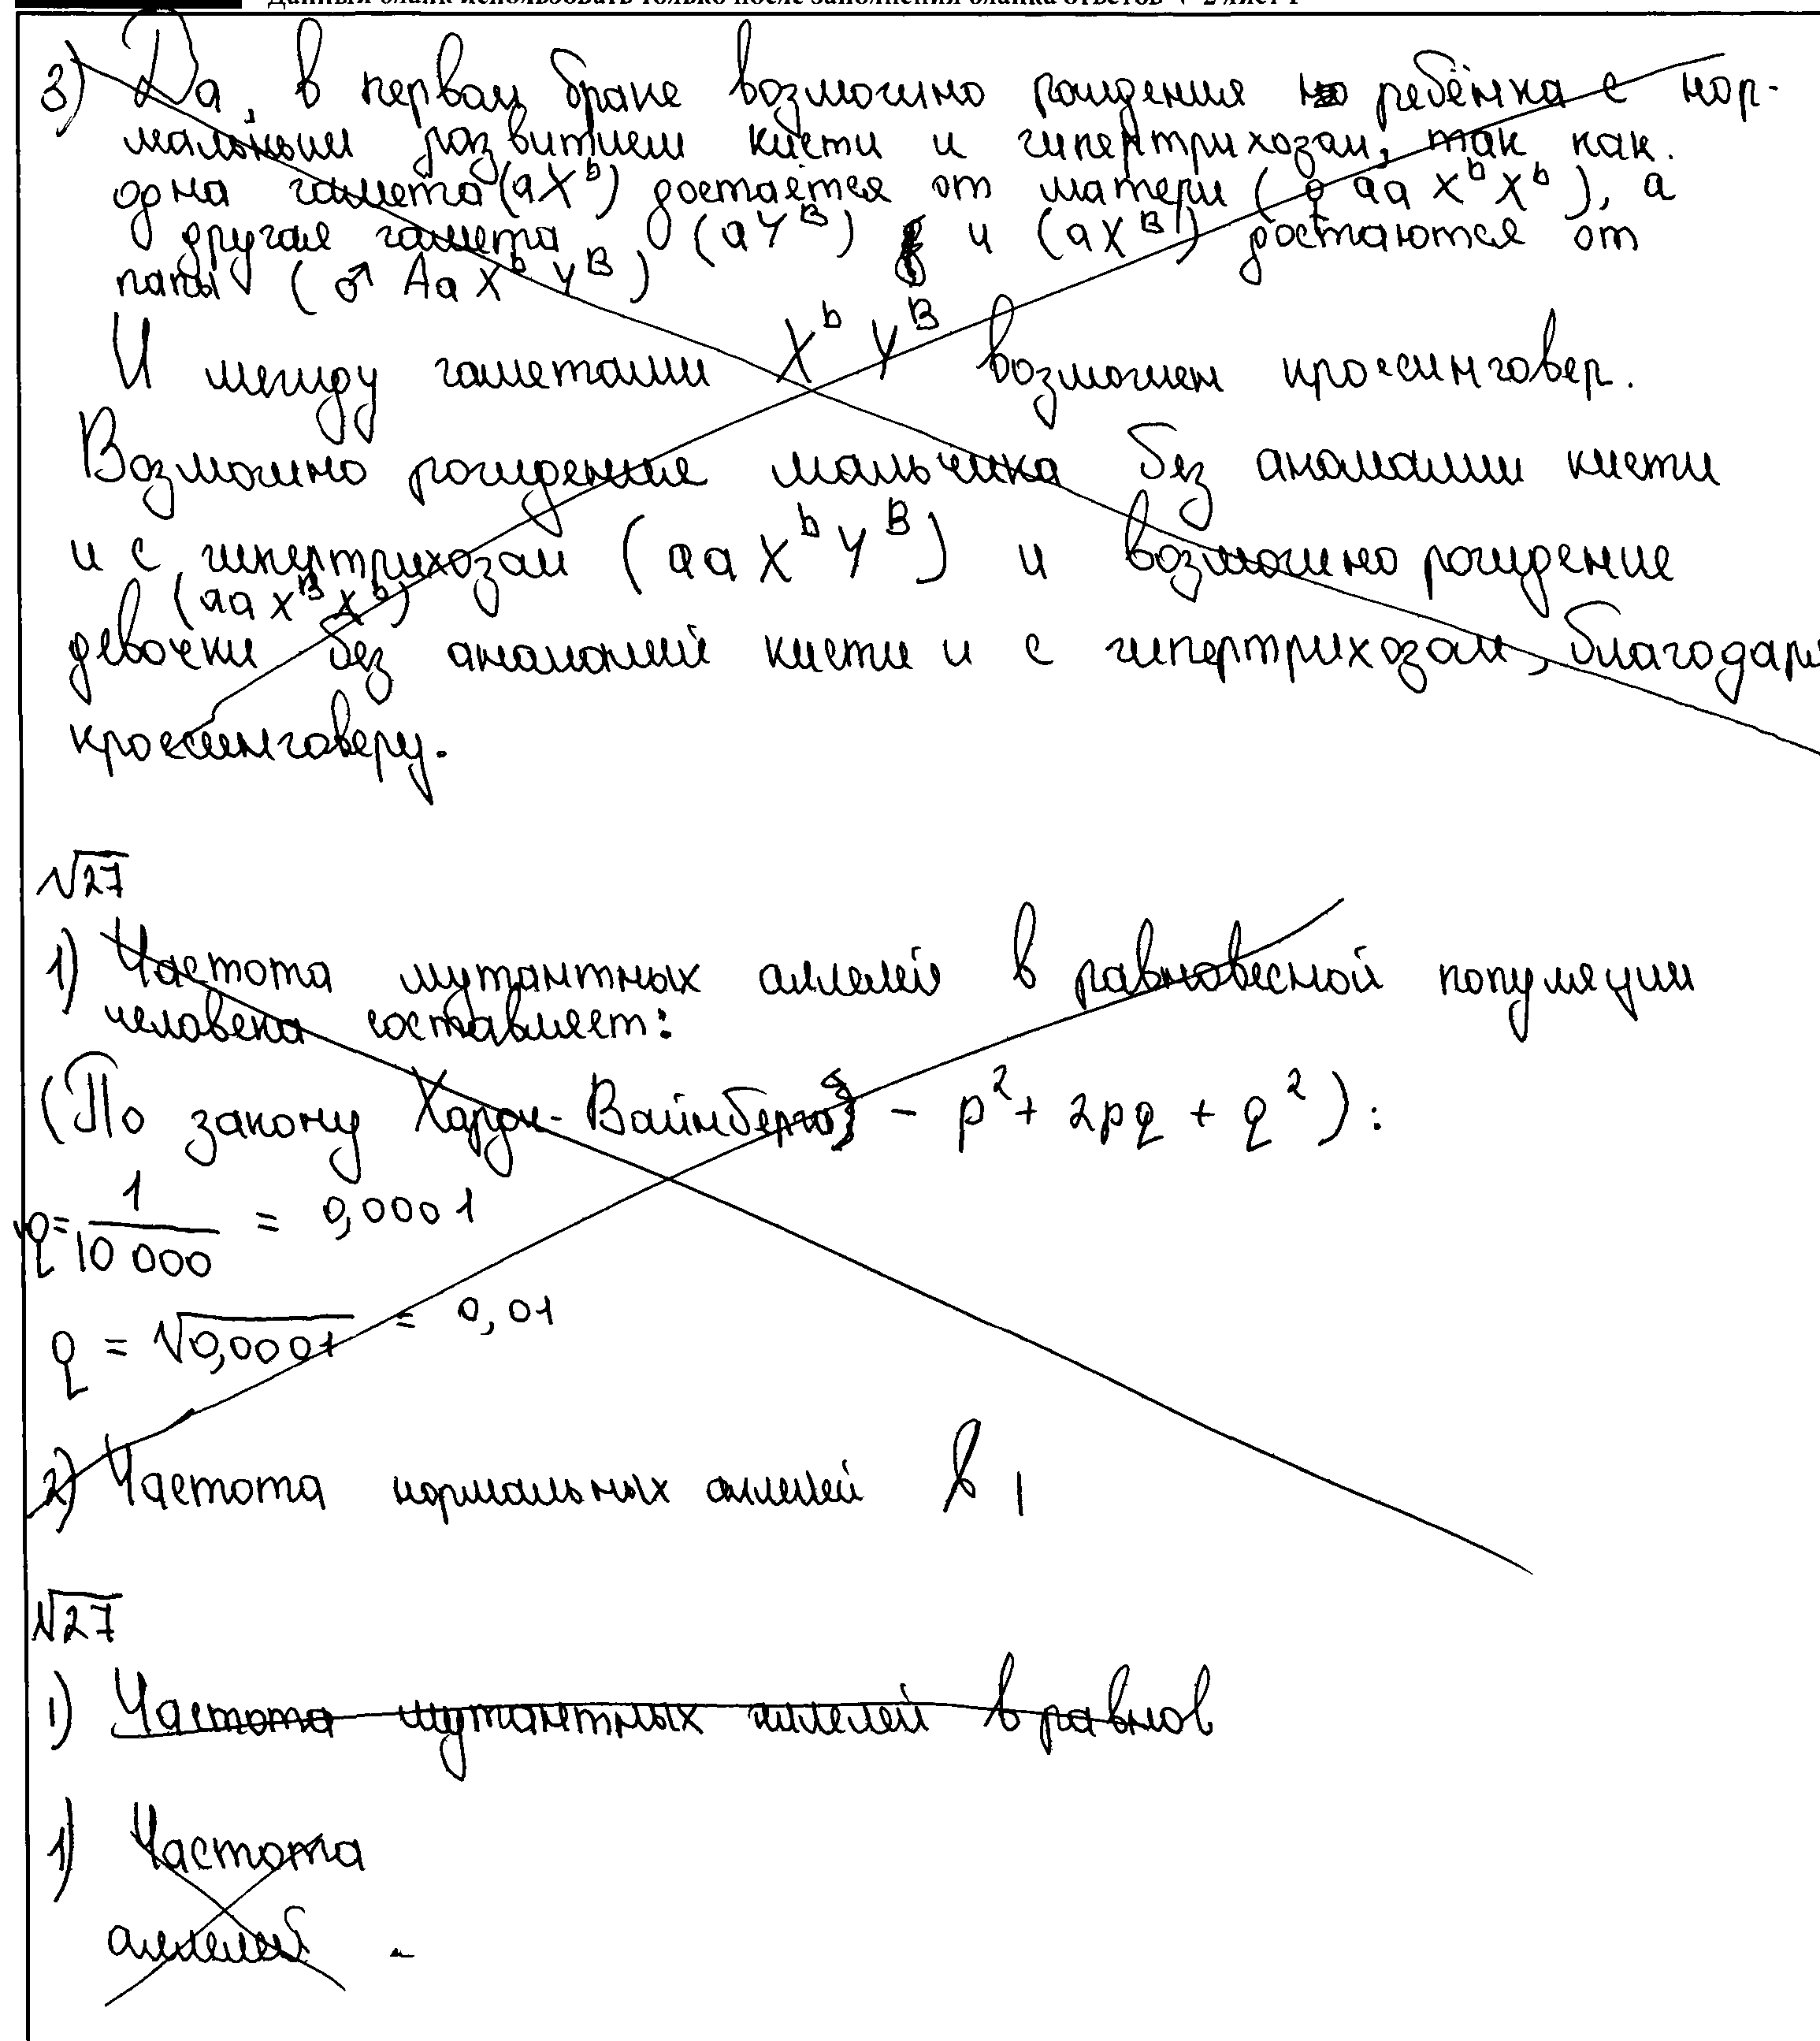 Данный бланк использовать только после заполнения бланка ответов № 2 лист 1
3) Да, в первом браке возможно рождения ребёнка с нор-
мальным развитием кисти и гипертрихозом, так как.
одна гамета (aX^b) достаётся от матери (♀ aa X^b X^b), а
другая гамета (aY^B) и (aX^B) достаются от
папы (♂ Aa X^b Y^B)
И между гаметами X^b Y^B возможен кроссинговер.
Возможно рождение мальчика без аномалии кисти
и с гипертрихозом (aa X^b Y^B) и возможно рождение
(aa X^B X^b)
девочки без аномалий кисти и с гипертрихозом, благодаря
кроссинговеру.
√27
1) Частота мутантных аллелей в равновесной популяции
человека составляет:
(По закону Харди-Вайнберга – p² + 2pq + q²):
q = 1/10 000 = 0,0001
q = √0,0001 = 0,01
2) Частота нормальных аллелей в
√27
1) Частота мутантных аллелей в равнов
1) Частота
аллелей -